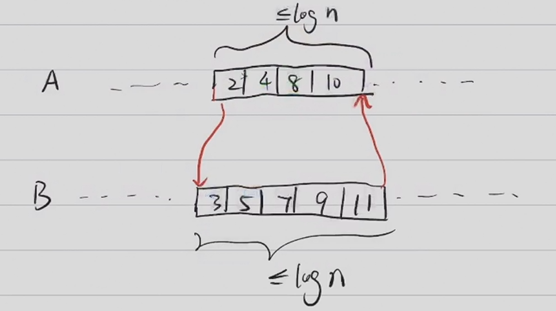 ≤log n
A 2 4 8 10
B 3 5 7 9 11
≤log n